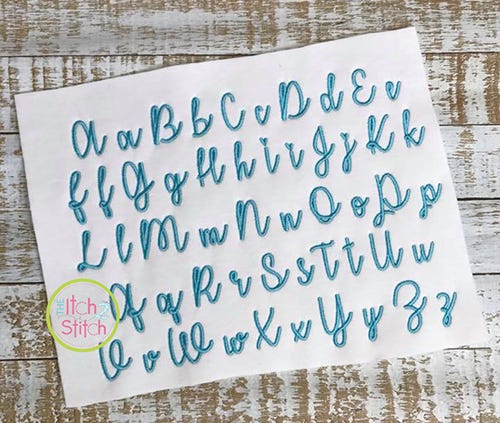 A a B b C c D d E e
F f G g H h I i J j K k
L l M m N n O o P p
Q q R r S s T t U u
V v W w X x Y y Z z
THE Itch 2 Stitch